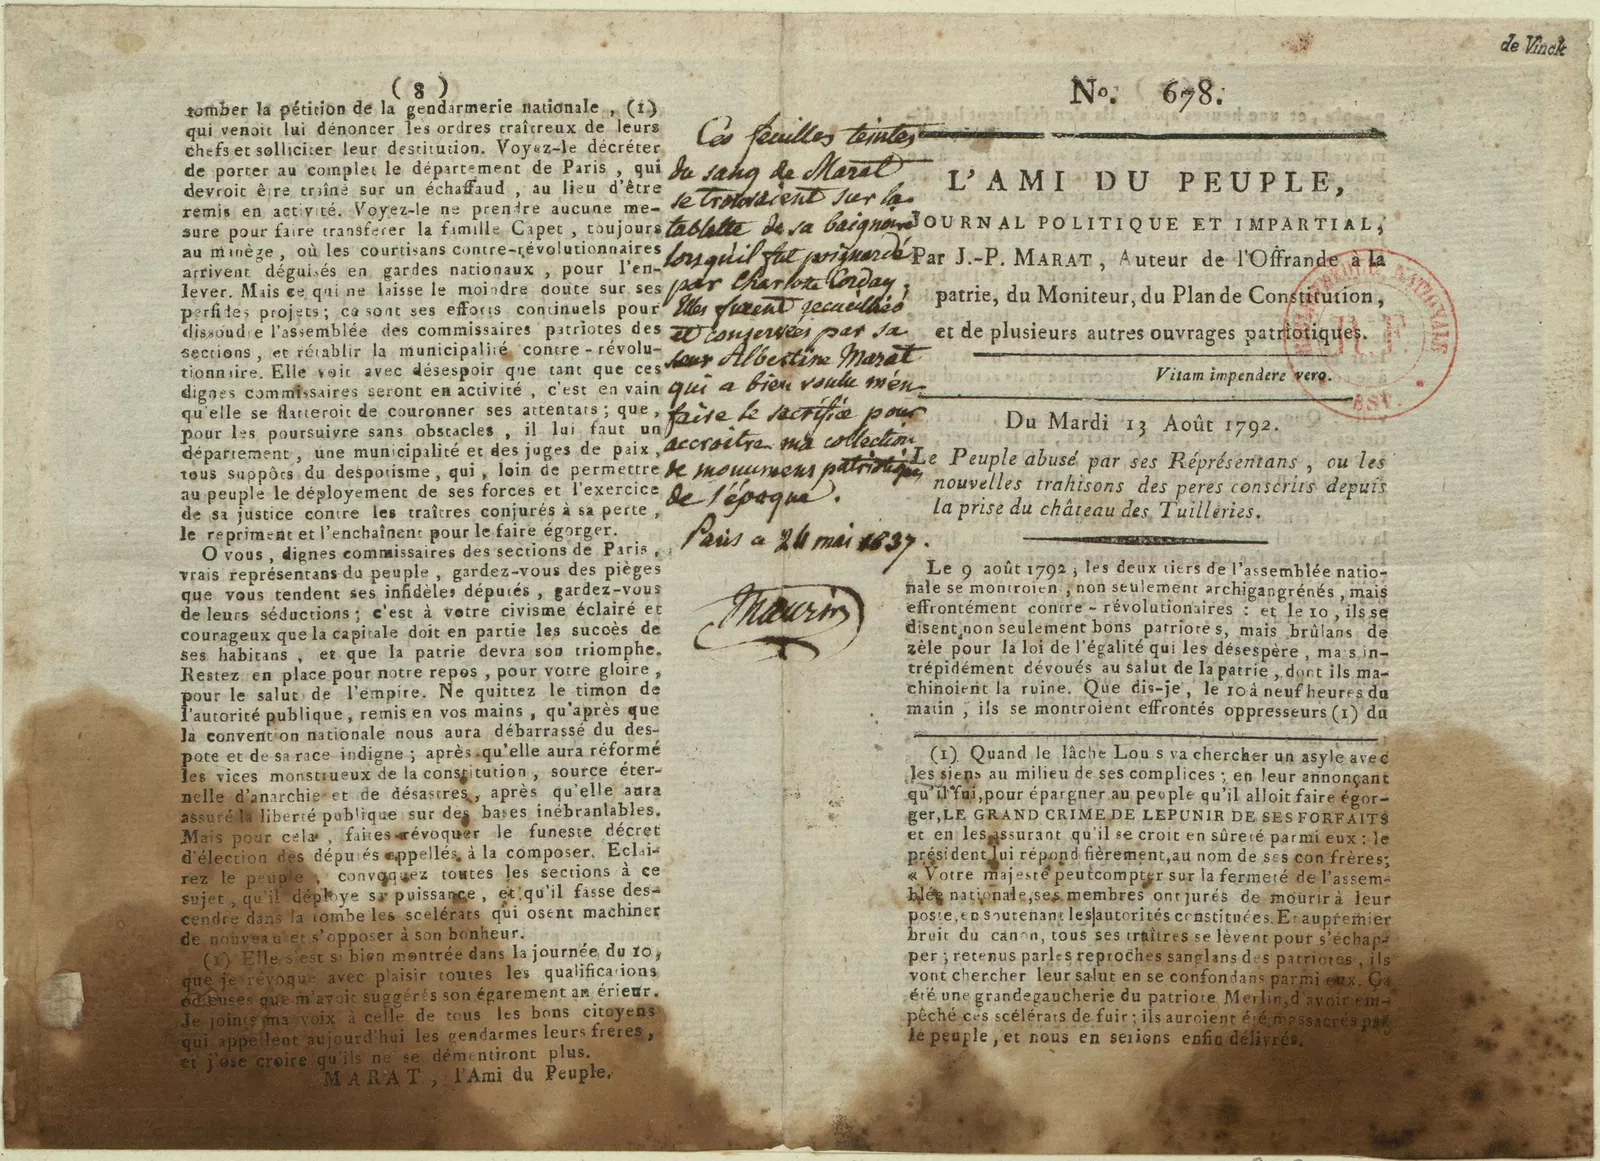 de Vinck
( 8 )
tomber la pétition de la gendarmerie nationale , (1)
qui venoit lui dénoncer les ordres traîtreux de leurs
chefs et solliciter leur destitution. Voyez-le décréter
de porter au complet le département de Paris , qui
devroit être traîné sur un échaffaud , au lieu d'être
remis en activité. Voyez-le ne prendre aucune me-
sure pour faire transférer la famille Capet , toujours
au minège , où les courtisans contre-révolutionnaires
arrivent déguisés en gardes nationaux , pour l'en-
lever. Mais ce qui ne laisse le moindre doute sur ses
perfides projets ; ce sont ses efforts continuels pour
dissoudre l'assemblée des commissaires patriotes des
sections , et rétablir la municipalité contre-révolu-
tionnaire. Elle voit avec désespoir que tant que ces
dignes commissaires seront en activité , c'est en vain
qu'elle se flatteroit de couronner ses attentats ; que,
pour les poursuivre sans obstacles , il lui faut un
département , une municipalité et des juges de paix ,
tous suppôts du despotisme , qui , loin de permettre
au peuple le déployement de ses forces et l'exercice
de sa justice contre les traîtres conjurés à sa perte ,
le repriment et l'enchaînent pour le faire égorger.
O vous , dignes commissaires des sections de Paris ,
vrais représentans du peuple , gardez-vous des pièges
que vous tendent ses infidèles députés , gardez-vous
de leurs séductions ; c'est à votre civisme éclairé et
courageux que la capitale doit en partie les succès de
ses habitans , et que la patrie devra son triomphe.
Restez en place pour notre repos , pour votre gloire ,
pour le salut de l'empire. Ne quittez le timon de
l'autorité publique , remis en vos mains , qu'après que
la convention nationale nous aura débarrassé du des-
pote et de sa race indigne ; après qu'elle aura réformé
les vices monstrueux de la constitution , source éter-
nelle d'anarchie et de désastres , après qu'elle aura
assuré la liberté publique sur des bases inébranlables.
Mais pour cela , faites révoquer le funeste décret
d'élection des députés appellés à la composer. Eclai-
rez le peuple , convoquez toutes les sections à ce
sujet , qu'il déploye sa puissance , et qu'il fasse des-
cendre dans la tombe les scélérats qui osent machiner
de nouveau et s'opposer à son bonheur.
(1) Elle s'est si bien montrée dans la journée du 10,
que je révoque avec plaisir toutes les qualifications
odieuses que m'avoit suggérés son égarement antérieur.
Je joins ma voix à celle de tous les bons citoyens
qui appellent aujourd'hui les gendarmes leurs freres ,
et j'ose croire qu'ils ne se démentiront plus.
MARAT , l'Ami du Peuple.
Ces feuilles teintes
du sang de Marat
se trouvaient sur la
tablette de sa baignoire
lorsqu'il fut poignardé
par Charlotte Corday ;
Elles furent recueillies
et conservées par sa
sœur Albertine Marat
qui a bien voulu m'en
faire le sacrifice pour
accroitre ma collection
de monumens patriotiques
de l'époque.
Paris ce 24 mai 1837.
Maurin
No. 678.
L'AMI DU PEUPLE,
JOURNAL POLITIQUE ET IMPARTIAL,
Par J.-P. MARAT , Auteur de l'Offrande à la
patrie, du Moniteur, du Plan de Constitution ,
et de plusieurs autres ouvrages patriotiques.
BIBLIOTHEQUE NATIONALE
R.F.
EST.
Vitam impendere vero.
Du Mardi 13 Août 1792.
Le Peuple abusé par ses Réprésentans , ou les
nouvelles trahisons des peres conscrits depuis
la prise du château des Tuilleries.
Le 9 août 1792 , les deux tiers de l'assemblée natio-
nale se montroien , non seulement archigangrénés , mais
effrontément contre-révolutionaires : et le 10 , ils se
disent non seulement bons patriotes, mais brûlans de
zèle pour la loi de l'égalité qui les désespère , mais in-
trépidément dévoués au salut de la patrie , dont ils ma-
chinoient la ruine. Que dis-je , le 10 à neuf heures du
matin , ils se montroient effrontés oppresseurs (1) du
(1) Quand le lâche Louis va chercher un asyle avec
les siens au milieu de ses complices ; en leur annonçant
qu'il fui, pour épargner au peuple qu'il alloit faire égor-
ger, LE GRAND CRIME DE LE PUNIR DE SES FORFAITS
et en les assurant qu'il se croit en sûreté parmi eux : le
président lui répond fièrement, au nom de ses confrères;
« Votre majesté peut compter sur la fermeté de l'assem-
blée nationale, ses membres ont jurés de mourir à leur
poste, en soutenant les autorités constituées. Et au premier
bruit du canon, tous ses traîtres se lèvent pour s'échap-
per ; retenus par les reproches sanglans des patriotes , ils
vont chercher leur salut en se confondans parmi eux. Ça
été une grande gaucherie du patriote Merlin, d'avoir em-
pêché ces scélérats de fuir ; ils auroient été massacrés par
le peuple , et nous en serions enfin délivrés.